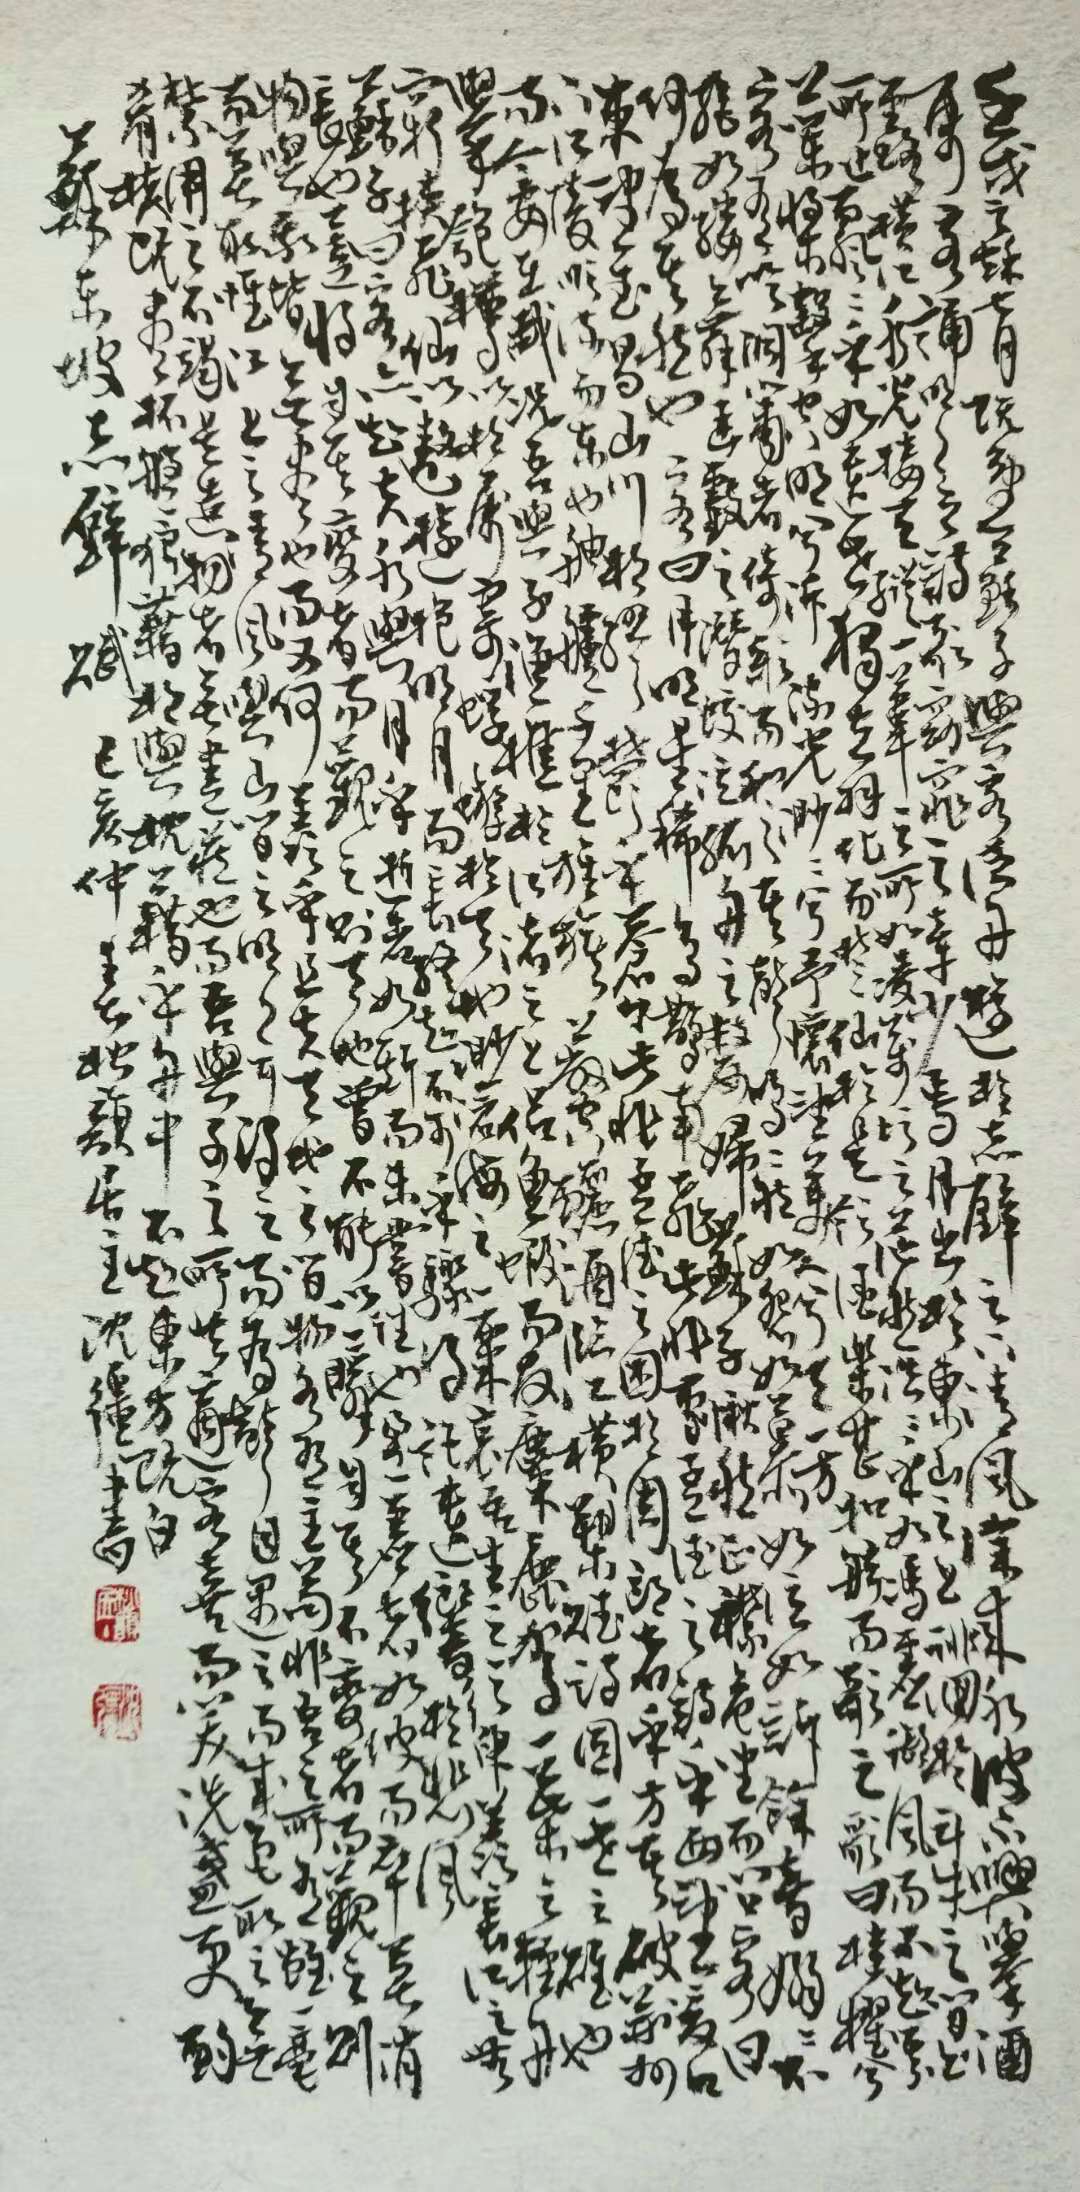 壬戌之秋七月既望蘇子與客泛舟遊於赤壁之下清風徐來水波不興舉酒
屬客誦明月之詩歌窈窕之章少焉月出於東山之上徘徊於斗牛之間白
露橫江水光接天縱一葦之所如凌萬頃之茫然浩浩乎如馮虛御風而不
知其所止飄飄乎如遺世獨立羽化而登仙於是飲酒樂甚扣舷而歌之歌曰桂櫂兮
蘭槳擊空明兮泝流光渺渺兮予懷望美人兮天一方
客有吹洞簫者倚歌而和之其聲嗚嗚然如怨如慕如泣如訴餘音嫋嫋不
絕如縷舞幽壑之潛蛟泣孤舟之嫠婦蘇子愀然正襟危坐而問客曰
何為其然也客曰月明星稀烏鵲南飛此非孟德之詩乎西望夏口
東望武昌山川相繆鬱乎蒼蒼此非孟德之困於周郎者乎方其破荊州
下江陵順流而東也舳艫千里旌旗蔽空釃酒臨江橫槊賦詩固一世之雄也
而今安在哉況吾與子漁樵於江渚之上侶魚蝦而友麋鹿駕一葉之輕舟
舉匏樽以相屬寄蜉蝣於天地渺滄海之一粟哀吾生之須臾羨長江之無
窮挾飛仙以遨遊抱明月而長終知不可乎驟得託遺響於悲風
蘇子曰客亦知夫水與月乎逝者如斯而未嘗往也盈虛者如彼而卒莫消
長也蓋將自其變者而觀之則天地曾不能以一瞬自其不變者而觀之則
物與我皆無盡也而又何羨乎且夫天地之間物各有主苟非吾之所有雖一毫
而莫取惟江上之清風與山間之明月耳得之而為聲目遇之而成色取之無
禁用之不竭是造物者之無盡藏也而吾與子之所共適客喜而笑洗盞更酌
肴核既盡杯盤狼藉相與枕藉乎舟中不知東方既白
蘇東坡赤壁賦 己亥仲春 居主沈 書